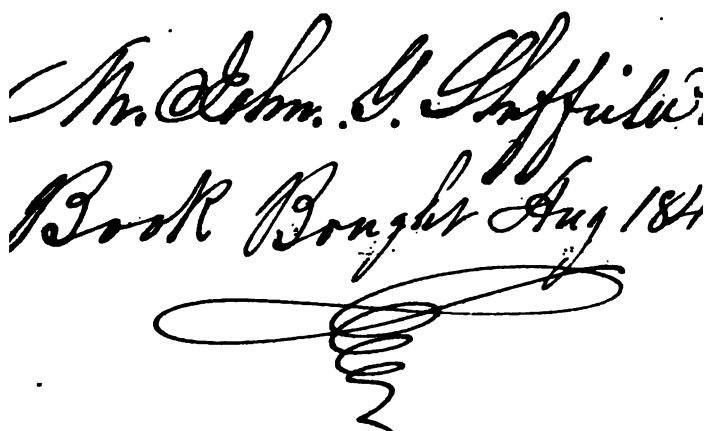 Mr. John. G. Sheffield
Book Bought Aug 184